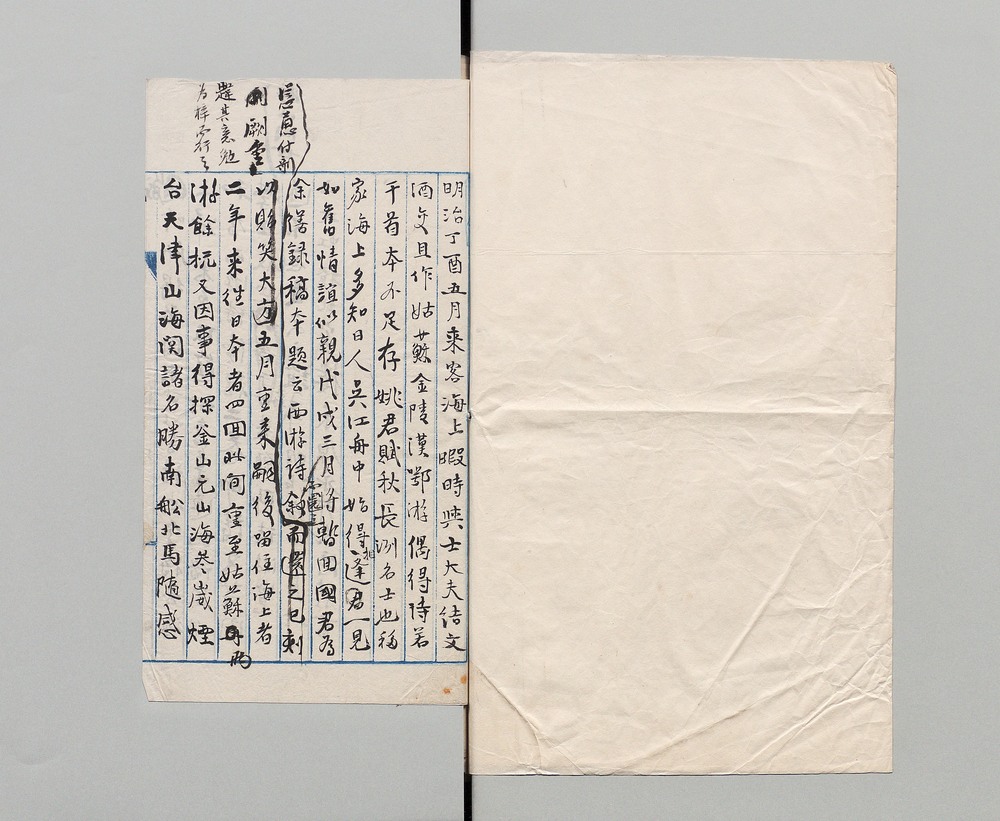 明治丁酉五月乘客海上暇時與士大夫結文
酒交且作姑蘇金陵漢鄂游偶得詩若
干首本不足存姚君賦秋長洲名士也移
家海上多知日人吳江舟中始得相逢君一見
如舊情誼似親戊戌三月將暫回國君為
余繕錄稿本題云西游詩
敘而還之已刻
以貽笑大方五月重來嗣後留住海上者
二年來往日本者四回此間重至姑蘇再
游餘杭又因事得探釜山元山海參崴煙
台天津山海関諸名勝南船北馬隨感
慫慂付剞
劂
違其意
為梓而行之